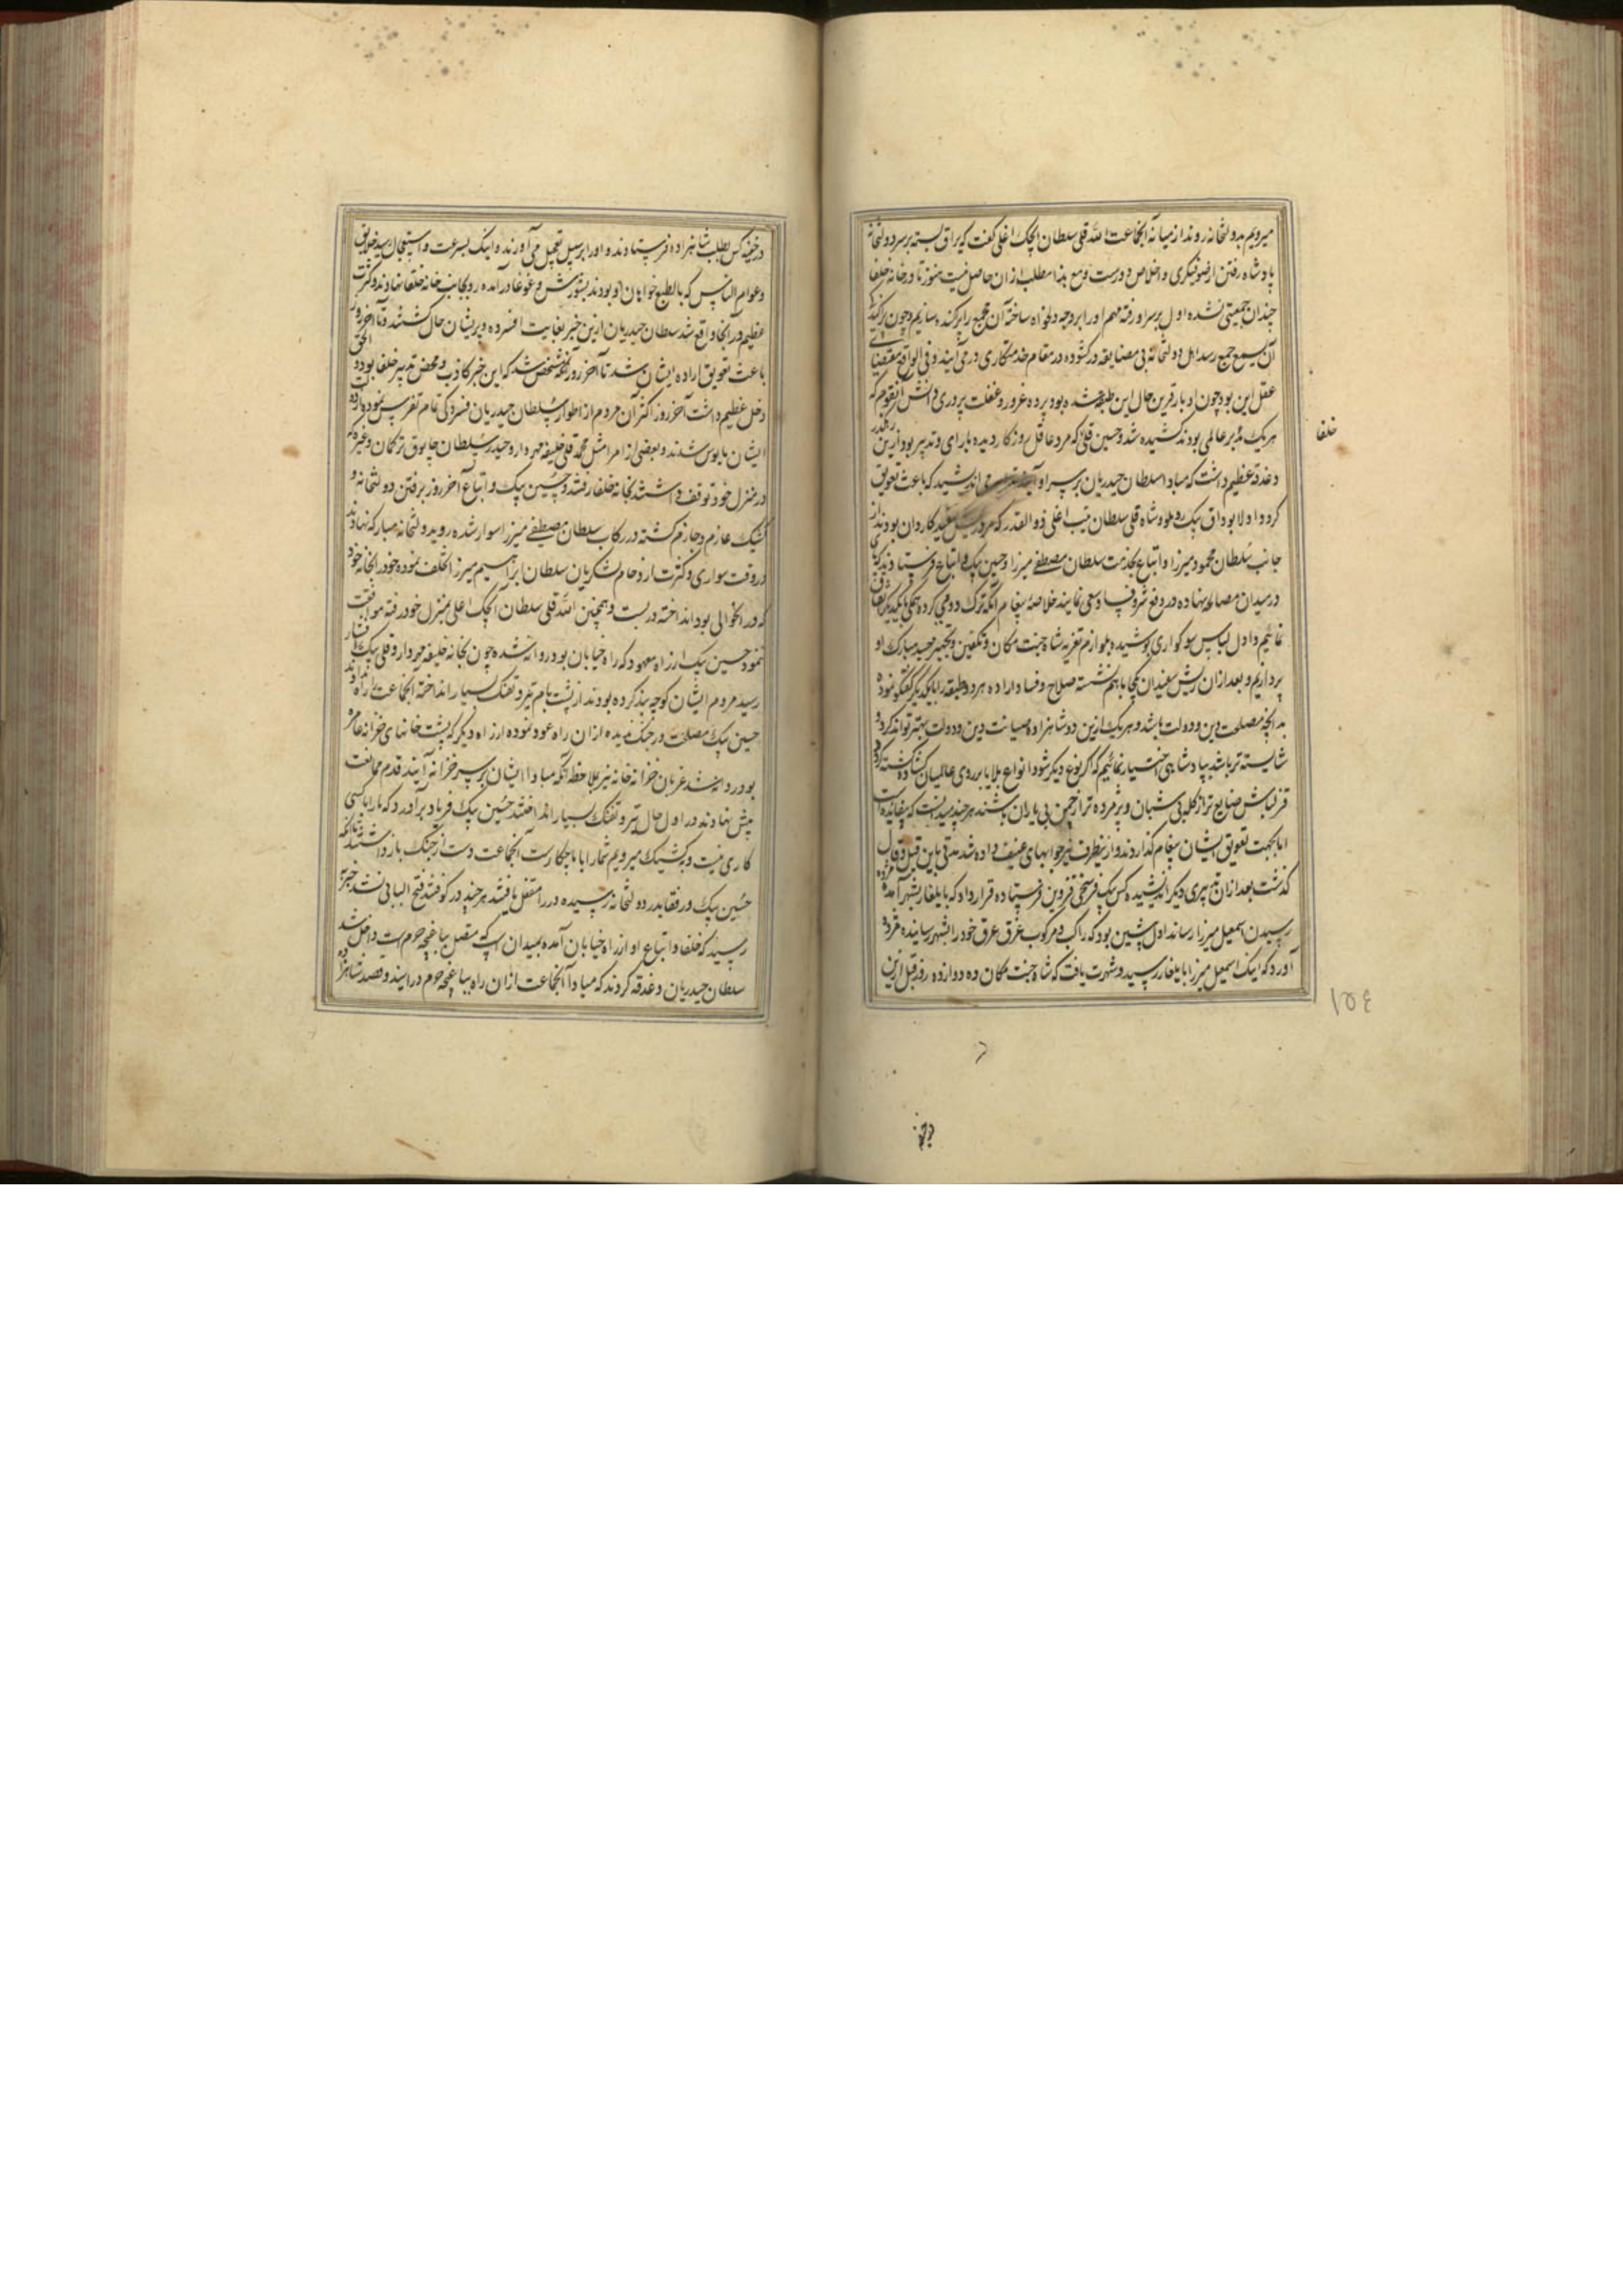 میرویم بدولتخانه روند از میانه آنجماعت الله قلی سلطان ایچک اغلی گفت که یراق بسته بر سر دولتخانه
پادشاه رفتن از صوفیگری و اخلاص دورست و مع هذا مطلب ازان حاصل نیست هنوز تا در خانه خلفا
چندان جمعیتی نشده اول بر سر او رفته مهم او را بر وجه دلخواه ساخته آن مجمع را پراکنده سازیم و چون پراکندگی
آن بسمع جمع رسد اهل دولتخانه بی مضایقه در گشوده در مقام خدمتکاری در می آیند و فی الواقع مقتضای
عقل این بود چون ادبار قرین حال این طبقه شده بود پرده غرور و غفلت پروری دانش آنقوم که
هر یک مدبر عالمی بودند کشیده شد و حسین قلی که مرد عاقل روزکار دیده با رای و تدبیر بود ازین رهگذر
دغدغه عظیم داشت که مبادا سلطان حیدریان بر سر او آیند می اندیشید که باعث تعویق
کردد اولا بوداق بیک روملو و شاه قلی سلطان تب اغلی ذوالقدر که مرد ریش سفید کاردان بودند از
جانب سلطان محمود میرزا و اتباع بخدمت سلطان مصطفی میرزا و حسین بیک و اتباع فرستادند که پا
در میدان مصالحه نهاده در دفع شر و فساد سعی نمایند خلاصه پیغام آنکه ترک دودمی کرده همگی با یکدیگر اتفاق
نمائیم و اول لباس سوکواری پوشیده بلوازم تعزیه شاه جنت مکان و تکفین و تجهیز جسد مبارک او
پردازیم و بعد ازان ریش سفیدان یکجا باهم نشسته صلاح و فساد اراده هر دو طبقه را بایکدیگر گفتگو نموده
بدانچه مصلحت دین و دولت باشد و هر یک ازین دو شاهزاده صیانت دین و دولت بهتر تواند کرد و
شایسته تر باشد بپادشاهی اختیار نمائیم که اگر نوع دیگر شود انواع بلایا بر روی عالمیان گشاده گشته کرده
قزلباش ضایع تر از گله بی شبان و پژمرده تر از چمن بی باران باشند هر چند میدانست که بیفایده است
اما بجهت تعویق ایشان پیغام گذاردند و ازینطرف نیز جوابهای عنیف داده شد مدتی باین قیل و قال
گذشت بعد ازان تدبیری دیگر اندیشیده کس بیک فرسخی قزوین فرستاده قرار داد که بایلغار بشهر آمده مژده
رسیدن اسمعیل میرزا رساند اول پشین بود که راکب و مرکوب غرق عرق خود را بشهر رسانیده مژده
آورد که اینک اسمعیل میرزا بایلغار رسید و شهرت یافت که شاه جنت مکان ده دوازده روز قبل ازین
خلفا
۱۵٤
در خفیه
در خفیه کس بطلب شاهزاده فرستادند و او را بر سبیل تعجیل می آورند و اینک بسرعت و استعجال رسید خلایق
و عوام الناس که بالطبع خواهان او بودند بشورش و غوغا درآمده رو بجانب خانه خلفا نهادند و کثرت
عظیم در آنجا واقع شد سلطان حیدریان ازین خبر بغایت افسرده و پریشان حال گشتند و تا آخر روز
باعث تعویق اراده ایشان شد تا آخر روز مشخص شد که این خبر کاذب و محض تدبیر خلفا بود و الحق
دخل عظیم داشت آخر روز اکثر آن مردم از اطوار سلطان حیدریان فسردگی تمام تفرس نموده از اراده
ایشان مایوس شدند و بعضی از امرا مثل محمد قلی خلیفه مهردار و حیدر سلطان چابوق ترکمان و غیرکه
در منزل خود توقف داشتند بخانه خلفا رفتند و حسین بیک و اتباع آخر روز برفتن دولتخانه و
کشیک عازم و جازم گشته در رکاب سلطان مصطفی میرزا سوار شده رو بدولتخانه مبارکه نهادند
در وقت سواری و کثرت ازدحام لشکریان سلطان ابراهیم میرزا تخلف نموده خود را بخانه خود
که در آنحوالی بود انداخته در بست و همچنین الله قلی سلطان ایچک اغلی بمنزل خود رفته موافقت
ننمود حسین بیک از راه معهود که راه خیابان بود روانه شده چون بخانه خلیفه مهردار و قلی بیک افشار
رسید مردم ایشان کوچه بند کرده بودند از پشت بام تیر و تفنگ بسیار انداخته آنجماعت را راه ندادند
حسین بیک مصلحت در جنگ ندیده از آن راه عود نموده از راه دیگر که پشت خانهای خزانه عامره
بود روانه شد عزبان خزانه خانه نیز بملاحظه آنکه مبادا ایشان بر سر خزانه آیند قدم ممانعت
پیش نهادند در اول حال تیر و تفنگ بسیار انداختند حسین بیک فریاد برآورد که ما را با کسی
کاری نیست و بکشیک میرویم شما را با ما چکارست آنجماعت دست از جنگ باز داشتند تا آنکه
حسین بیک و رفقا بدر دولتخانه رسیده در را مقفل یافتند هر چند در کوفتند فتح البابی نشد خبر
رسید که خلفا و اتباع او از راه خیابان آمده بمیدان اسپ که متصل بباغچه حرم است داخل شد
سلطان حیدریان دغدغه کردند که مبادا آنجماعت از ان راه بباغچه حرم درآیند و قصد شاهزاده